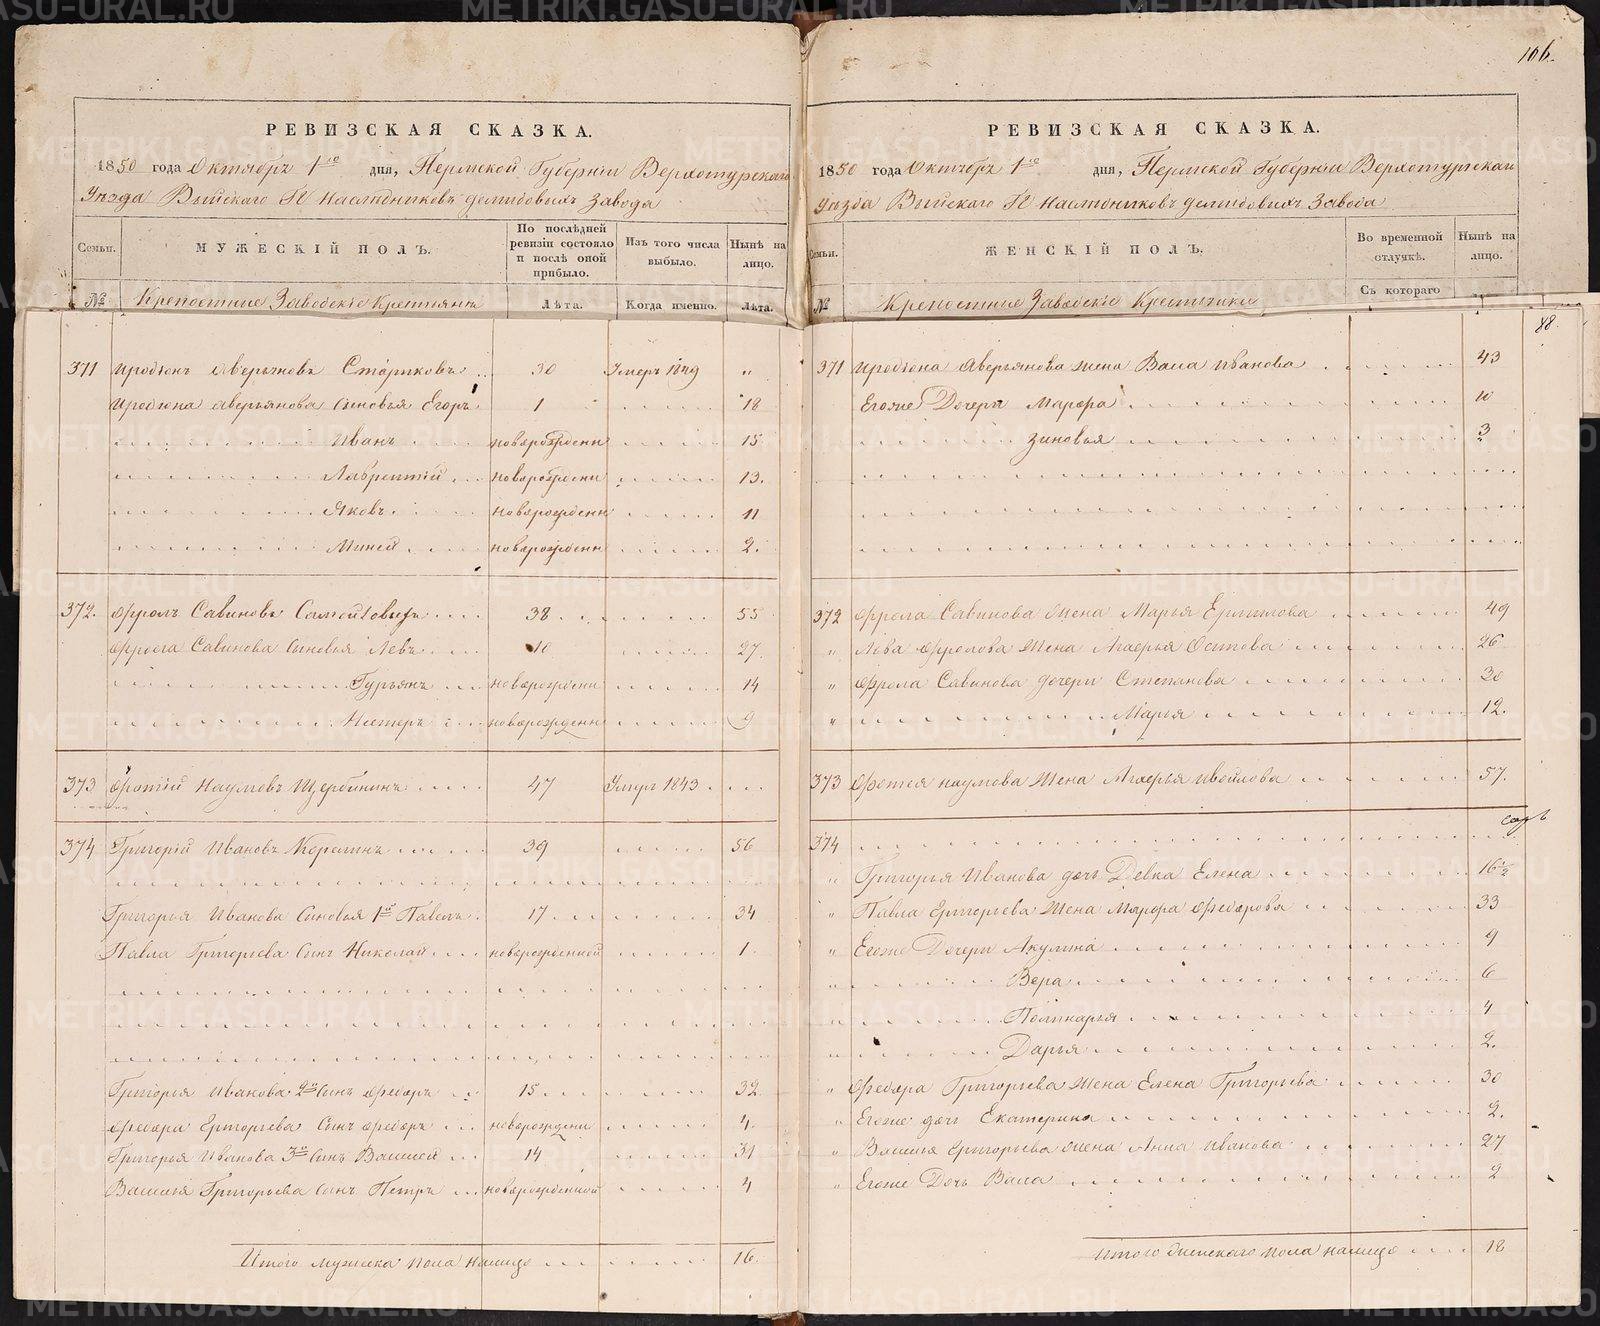 106.
РЕВИЗСКАЯ СКАЗКА.
1850 года Октября 1го дня, Пермской Губерніи Верхотурскаго
Уезда Выйскаго Гг Наследниковъ Демидовыхъ Завода
Семьи. МУЖЕСКІЙ ПОЛЪ. По послѣдней ревизіи состояло и послѣ оной прибыло. Изъ того числа выбыло. Нынѣ на лицо.
№ Крепостные Заводскіе Крестьяне Лѣта. Когда именно. Лѣта.
371 Иродіонъ Аверьяновъ 30 Умеръ 1849 "
Иродіона Аверьянова Сыновья Егоръ 1 18
Иванъ новорожденн 15
Лаврентій новорожденн 13.
Яковъ новорожденн 11
Миней новорожденн 2.
372. Фролъ Савиновъ 38 55
Фрола Савинова Сыновья Левъ 10 27
Гурьянъ новорожденн 14
Нестеръ новорожденн 9
373 Фотій Наумовъ Щербининъ 47 Умеръ 1843
374 Григорій Ивановъ 39 56
Григорья Иванова Сыновья 1й Павелъ 17 34
Павла Григорьева Сынъ Николай новорожденной 1
Григорья Иванова 2й Сынъ Федоръ 15 32
Федора Григорьева Сынъ Федоръ новорожденн 4.
Григорья Иванова 3й Сынъ Василей 14 31
Василья Григорьева Сынъ Петръ новорожденной 4
Итого мужеска пола налицо 16.
РЕВИЗСКАЯ СКАЗКА.
1850 года Октября 1го дня, Пермской Губерніи Верхотурскаго
Уезда Выйскаго Гг Наследниковъ Демидовыхъ Завода
Семьи. ЖЕНСКІЙ ПОЛЪ. Во временной отлучкѣ. Нынѣ на лицо.
№ Крепостные Заводскіе Крестьянки Съ котораго
88.
371 Иродіона Аверьянова жена Васа Иванова 43
Егоже Дочери Марфа 10
Зиновья 3
372 Фрола Савинова Жена Марья Ермилова 49
" Лева Фролова Жена Агафья Осипова 26
" Фрола Савинова дочери Степанова 20
" Марья 12.
373 Фотея Наумова Жена Агафья 57.
374
" Григорья Иванова дочь Девка Елена 16½
" Павла Григорьева Жена Марфа Федорова 33
" Егоже Дочери Акулина 9
" Вера 6
" Поликарья 4
" Дарья 2.
" Федора Григорьева Жена Елена Григорьева 30
" Егоже дочь Екатерина 2.
" Василья Григорьева Жена Анна Иванова 27
" Егоже Дочь Васа 2
Итого женскаго пола налицо 18
METRIKI.GASO-URAL.RU